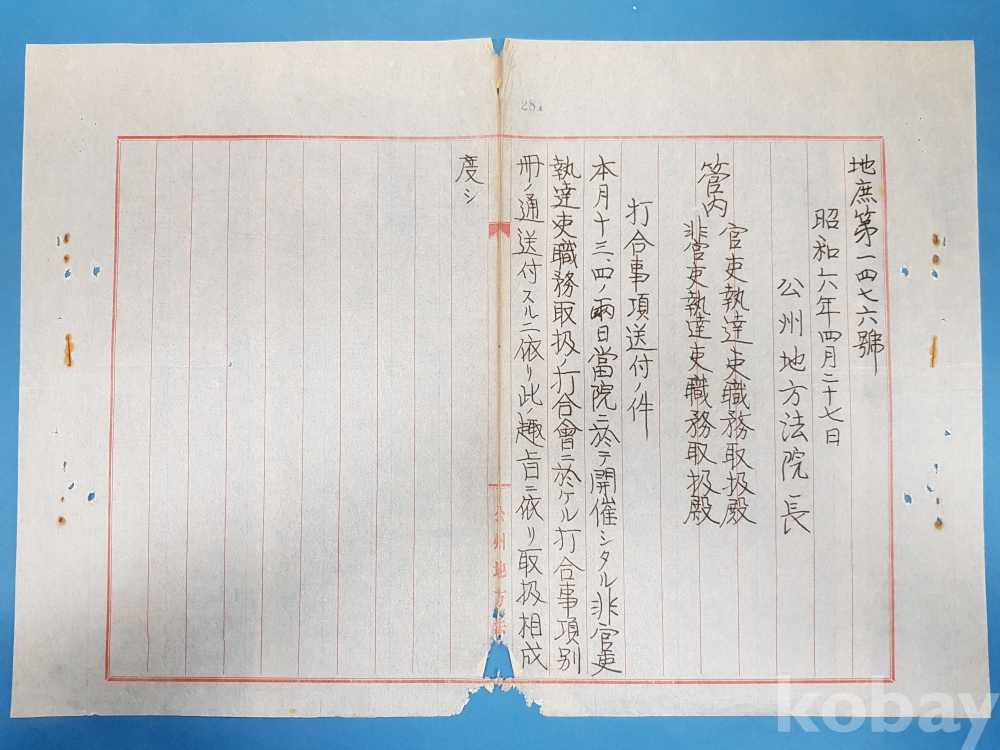 281
地庶第一四七六號
昭和六年四月二十七日
公州地方法院長
管内
官吏執達吏職務取扱殿
非官吏執達吏職務取扱殿
打合事項送付ノ件
本月十三、四ノ兩日當院ニ於テ開催シタル非官吏
執達吏職務取扱ノ打合會ニ於ケル打合事項別
冊ノ通送付スルニ依リ此ノ趣旨ニ依リ取扱相成
度シ
公州地方法
kobay